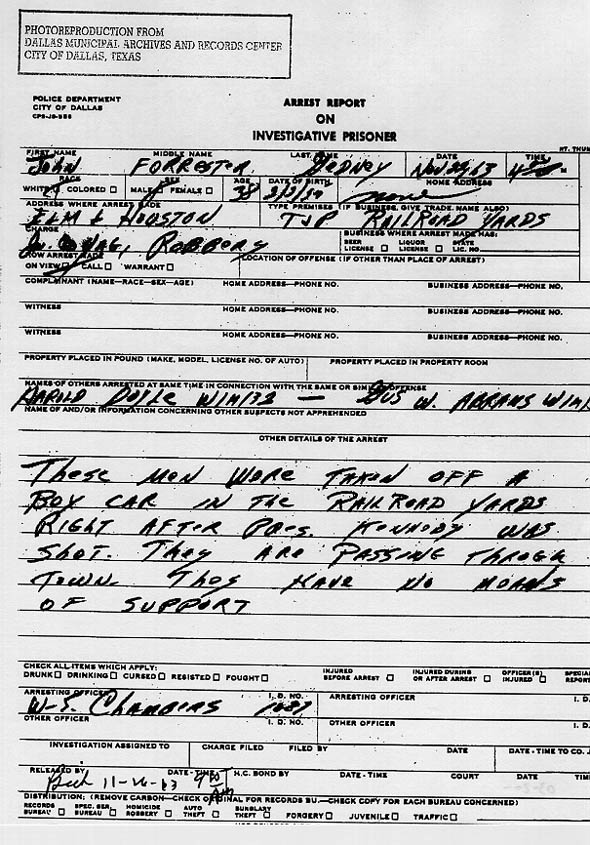 PHOTOREPRODUCTION FROM
DALLAS MUNICIPAL ARCHIVES AND RECORDS CENTER
CITY OF DALLAS, TEXAS
POLICE DEPARTMENT
CITY OF DALLAS
ARREST REPORT
ON
INVESTIGATIVE PRISONER
FIRST NAME MIDDLE NAME LAST NAME DATE TIME RT. THUM
John Forrester Gedney Nov 22 63
RACE SEX AGE DATE OF BIRTH HOME ADDRESS
WHITE COLORED MALE FEMALE 38 none
ADDRESS WHERE ARREST MADE TYPE PREMISES (IF BUSINESS, GIVE TRADE NAME ALSO)
Elm & Houston T&P RailRoad Yards
CHARGE BUSINESS WHERE ARREST MADE HAS:
Vag, Robbery BEER LICENSE LIQUOR LICENSE STATE LIC. NO.
HOW ARREST MADE LOCATION OF OFFENSE (IF OTHER THAN PLACE OF ARREST)
ON VIEW CALL WARRANT
COMPLAINANT (NAME—RACE—SEX—AGE) HOME ADDRESS—PHONE NO. BUSINESS ADDRESS—PHONE NO.
WITNESS HOME ADDRESS—PHONE NO. BUSINESS ADDRESS—PHONE NO.
WITNESS HOME ADDRESS—PHONE NO. BUSINESS ADDRESS—PHONE NO.
PROPERTY PLACED IN POUND (MAKE, MODEL, LICENSE NO. OF AUTO) PROPERTY PLACED IN PROPERTY ROOM
NAMES OF OTHERS ARRESTED AT SAME TIME IN CONNECTION WITH THE SAME OR SIMILAR OFFENSE
Harold Doyle W/M/32 — Gus W. Abrams W/M/
NAME OF AND/OR INFORMATION CONCERNING OTHER SUSPECTS NOT APPREHENDED
OTHER DETAILS OF THE ARREST
These men were taken off a
Box car in the RailRoad yards
Right after Pres. Kennedy was
shot. They are passing through
town. They have no means
of support
CHECK ALL ITEMS WHICH APPLY:
DRUNK DRINKING CURSED RESISTED FOUGHT INJURED BEFORE ARREST INJURED DURING OR AFTER ARREST OFFICER(S) INJURED SPECIAL REPORT
ARRESTING OFFICER I. D. NO. ARRESTING OFFICER I. D.
Chambers
OTHER OFFICER I. D. NO. OTHER OFFICER I. D.
INVESTIGATION ASSIGNED TO CHARGE FILED FILED BY DATE DATE - TIME TO CO. J
RELEASED BY DATE - TIME H.C. BOND BY DATE - TIME COURT DATE TIME
11-26-63 AM
DISTRIBUTION: (REMOVE CARBON—CHECK ORIGINAL FOR RECORDS BU.—CHECK COPY FOR EACH BUREAU CONCERNED)
RECORDS BUREAU SPEC. SER. BUREAU HOMICIDE ROBBERY AUTO THEFT BURGLARY THEFT FORGERY JUVENILE TRAFFIC